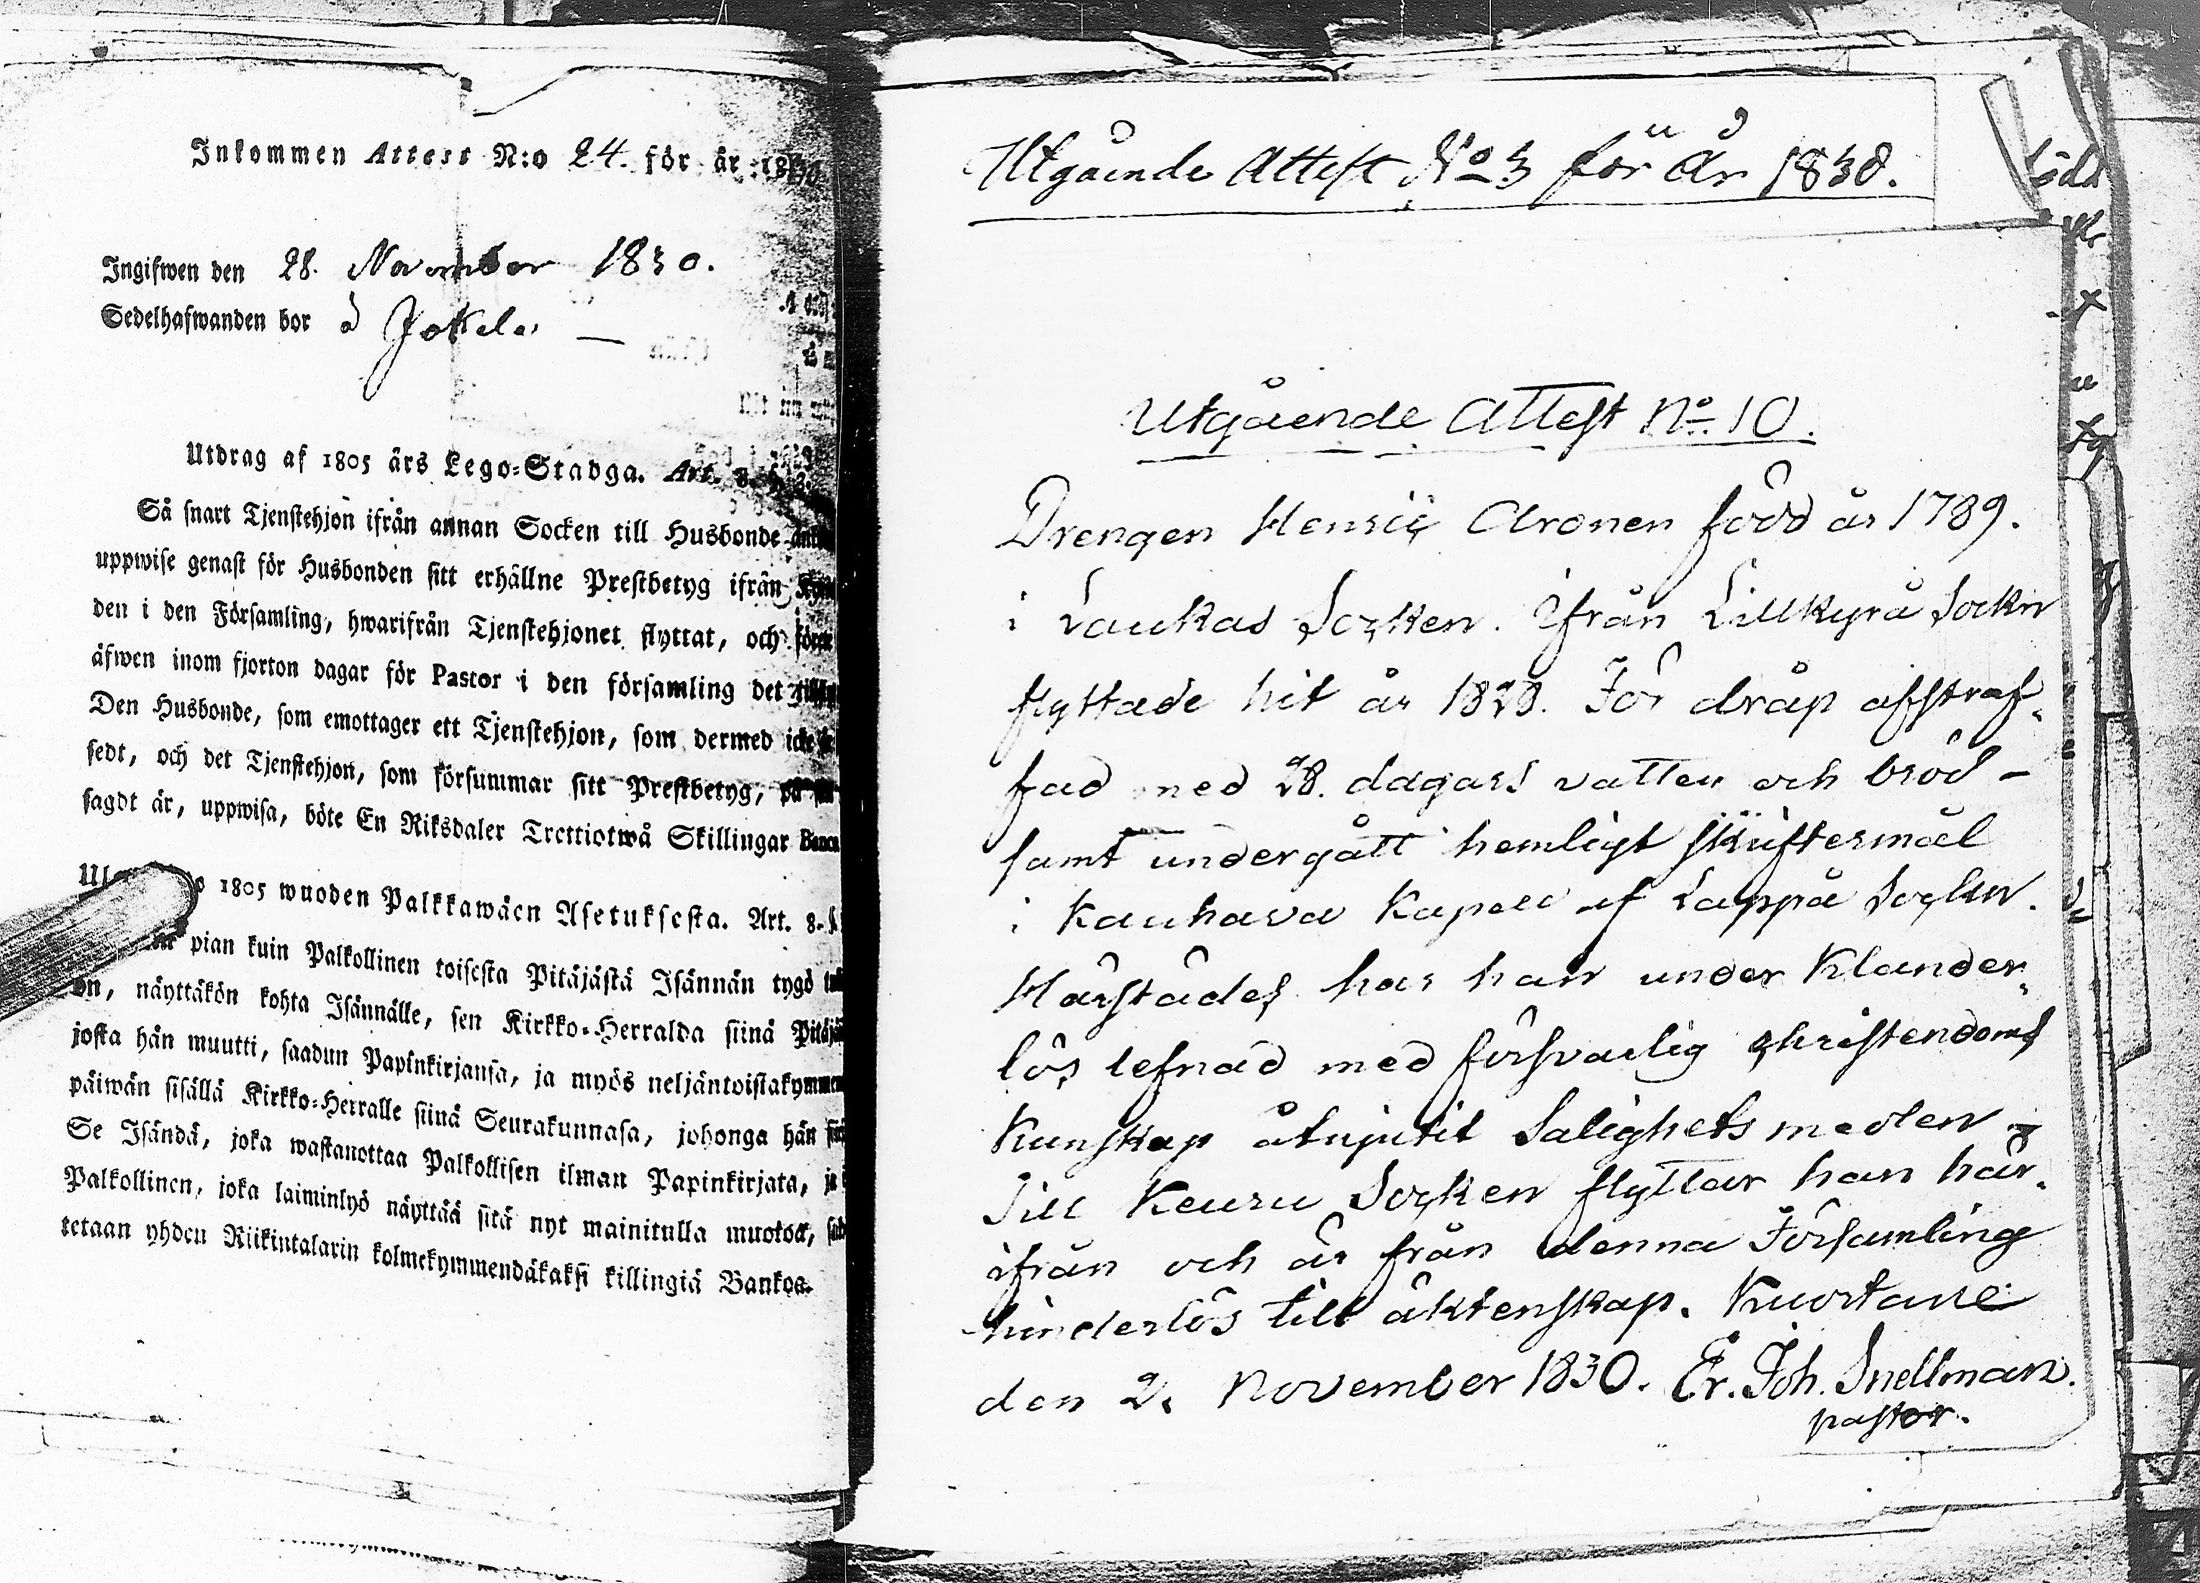 Inkommen Attest N:o 24. för år 1830
Ingifwen den 28. November 1830.
Sedelhafwanden bor å Jokela —
Utdrag af 1805 års Lego-Stadga. Art. 8. §. 2.
Så snart Tjenstehjon ifrån annan Socken till Husbonde
uppwise genast för Husbonden sitt erhållne Prestbetyg ifrån
den i den Församling, hwarifrån Tjenstehjonet flyttat, och
äfwen inom fjorton dagar för Pastor i den församling det
Den Husbonde, som emottager ett Tjenstehjon, som dermed icke
sedt, och det Tjenstehjon, som försummar sitt Prestbetyg, på
sagdt är, uppwisa, böte En Riksdaler Trettiotwå Skillingar Banco
1805 wuoden Palkkawäen Asetuksesta. Art. 8. §
pian kuin Palkollinen toisesta Pitäjästä Isännän tygö
on, näyttäkön kohta Isännälle, sen Kirkko-Herralda siinä
josta hän muutti, saadun Papinkirjansa, ja myös neljäntoistakymmen
päiwän sisällä Kirkko-Herralle siinä Seurakunnasa, johonga hän
Se Isändä, joka wastanottaa Palkollisen ilman Papinkirjata, ja
Palkollinen, joka laiminlyö näyttää sitä nyt mainitulla muotoa,
tetaan yhden Riikintalarin kolmekymmendäkaksi killingiä Bankoa.
Utgående Attest No 3 för År 1830.
Utgående Attest No. 10.
Drengen Henric Aronen född år 1789.
i Laukas Socken. Ifrån Lillkyrå Sockn
flyttade hit år 1828. För dråp afstraf-
fad med 28. dagars vatten och bröd -
samt undergått hemligt skriftermål
i Kauhava Kapell af Lappå Socken.
Härstädes har han under Klander-
lös lefnad med försvarlig christendoms
Kunskap åtnjutit Salighets medlen -
Till Keuru Socken flyttar han här-
ifrån och är från denna Församling
hinderlös till äktenskap. Kuortane
den 2. November 1830. Er. Joh. Snellman.
pastor.